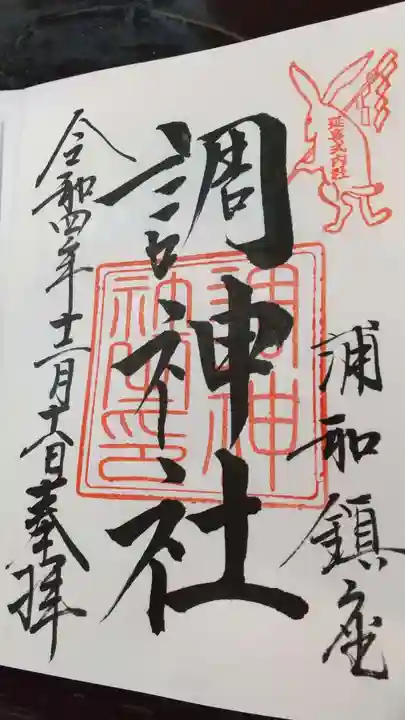 延喜式内社
浦和鎮座
調神社
調神社印
令和四年十二月十六日奉拝